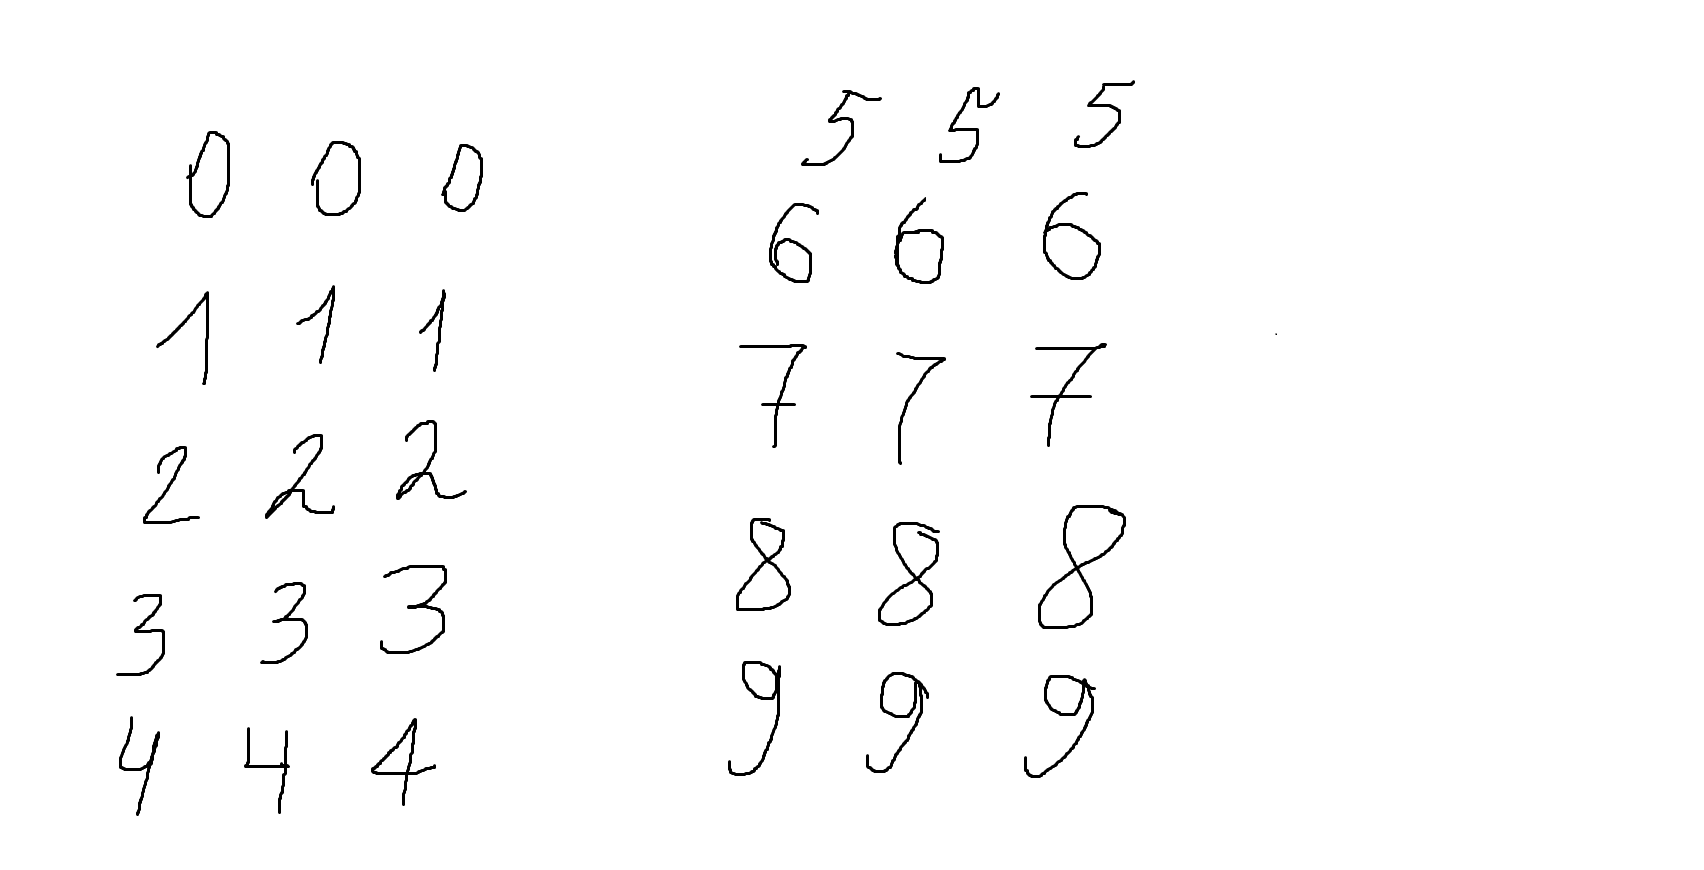 0 0 0
1 1 1
2 2 2
3 3 3
4 4 4
5 5 5
6 6 6
7 7 7
8 8 8
9 9 9